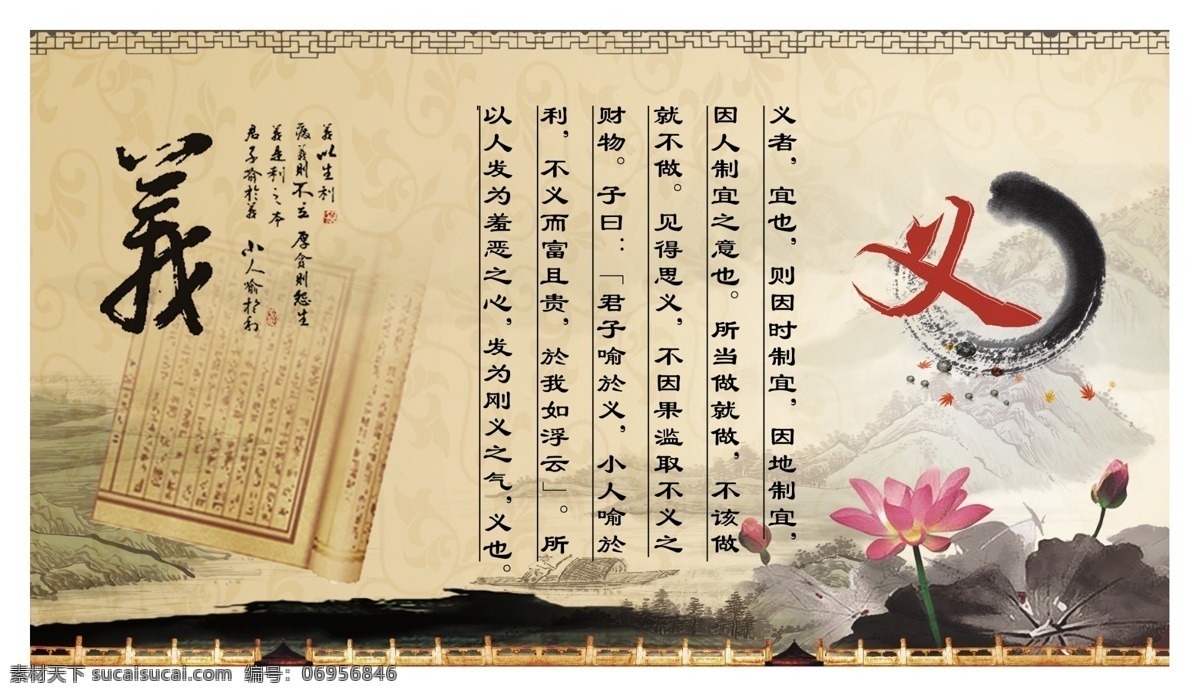 义
义者，宜也，则因时制宜，因地制宜，
因人制宜之意也。所当做就做，不该做
就不做。见得思义，不因果滥取不义之
财物。子曰：「君子喻於义，小人喻於
利，不义而富且贵，於我如浮云」。所
以人发为羞恶之心，发为刚义之气，义也。
義以生利
廢義則不立 厚貪則怨生
義是利之本
君子喻於義 小人喻於利
義
素材天下 sucaisucai.com 编号：06956846